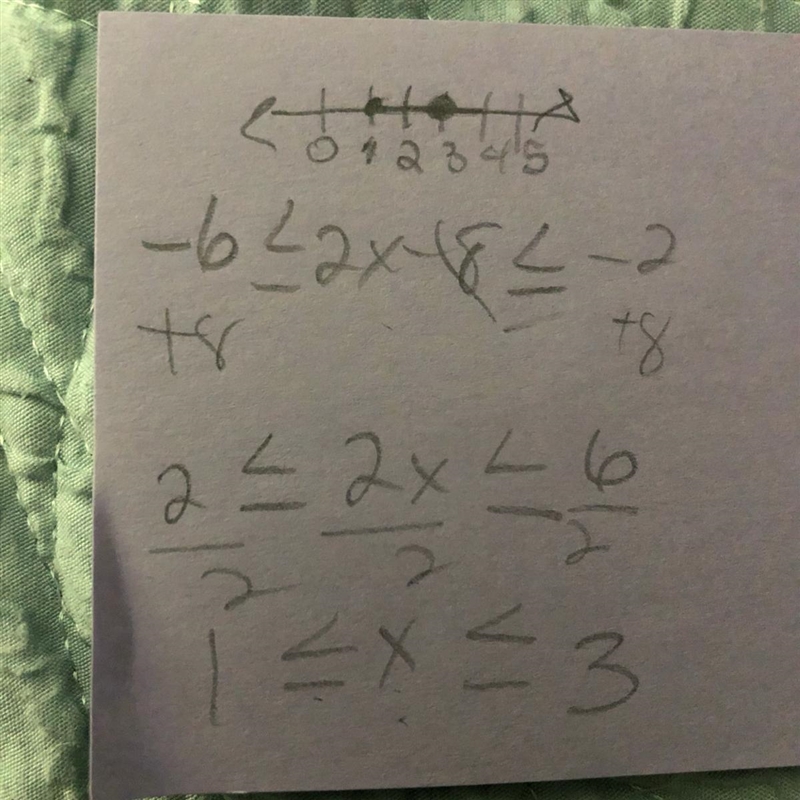 0 1 2 3 4 5
-6 ≤ 2x - 8 ≤ -2
+8 +8
2 ≤ 2x ≤ 6
2 2 2
1 ≤ x ≤ 3